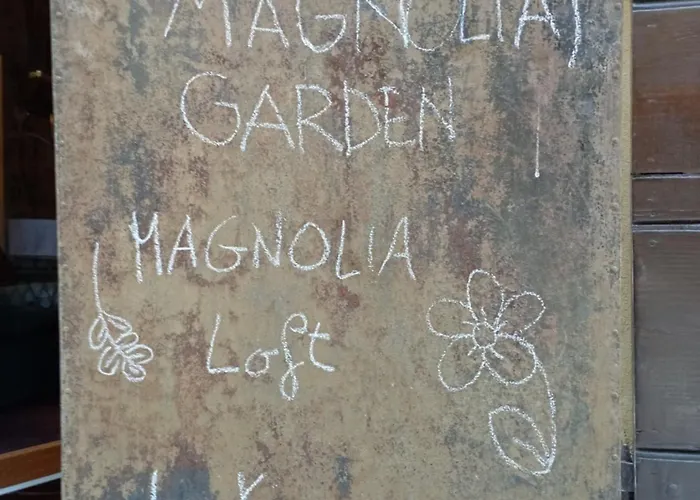 MAGNOLIA
GARDEN
MAGNOLIA
Loft